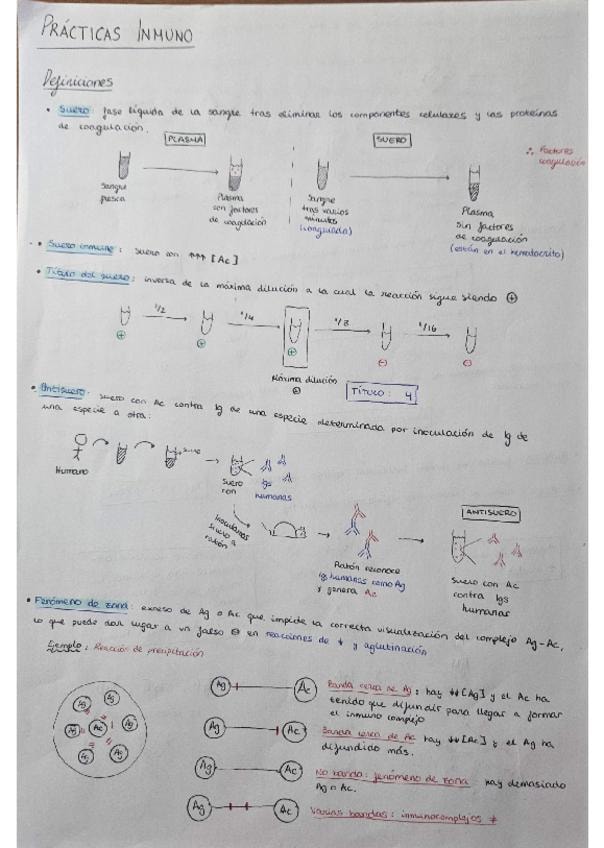 PRÁCTICAS INMUNO
Definiciones
• Suero: fase líquida de la sangre tras eliminar los componentes celulares y las proteínas
de coagulación.
PLASMA
SUERO
∴ Factores
coagulación
Sangre
fresca
Plasma
con factores
de coagulación
Sangre
tras varios
minutos
(coagulada)
Plasma
sin factores
de coagulación
(están en el hematocrito)
• Suero inmune: suero con ↑↑↑ [Ac]
• Título del suero: inversa de la máxima dilución a la cual la reacción sigue siendo ⊕
1/2
1/4
1/8
1/16
⊕
⊕
⊕
⊖
⊖
Máxima dilución
⊕
TÍTULO: 4
• Antisuero: suero con Ac contra Ig de una especie determinada por inoculación de Ig de
una especie a otra:
Humano
suero
Suero
con
Igs
humanas
Inoculamos
suero a
ratón
Ratón reconoce
Ig humanas como Ag
y genera Ac
ANTISUERO
Suero con Ac
contra Igs
humanas
• Fenómeno de zona: exceso de Ag o Ac que impide la correcta visualización del complejo Ag-Ac,
lo que puede dar lugar a un falso ⊖ en reacciones de ↓ y aglutinación
Ejemplo: Reacción de precipitación
Ag
Ag
Ag
Ag
Ac
Ag
Ag
Ag
Ac
Banda cerca de Ag: hay ↓↓[Ag] y el Ac ha
tenido que difundir para llegar a formar
el inmuno complejo
Ag
Ac
Banda cerca de Ac hay ↓↓[Ac] y el Ag ha
difundido más.
Ag
Ac
No banda: fenómeno de zona hay demasiado
Ag o Ac.
Ag
Ac
Varias bandas: inmunocomplejos ≠